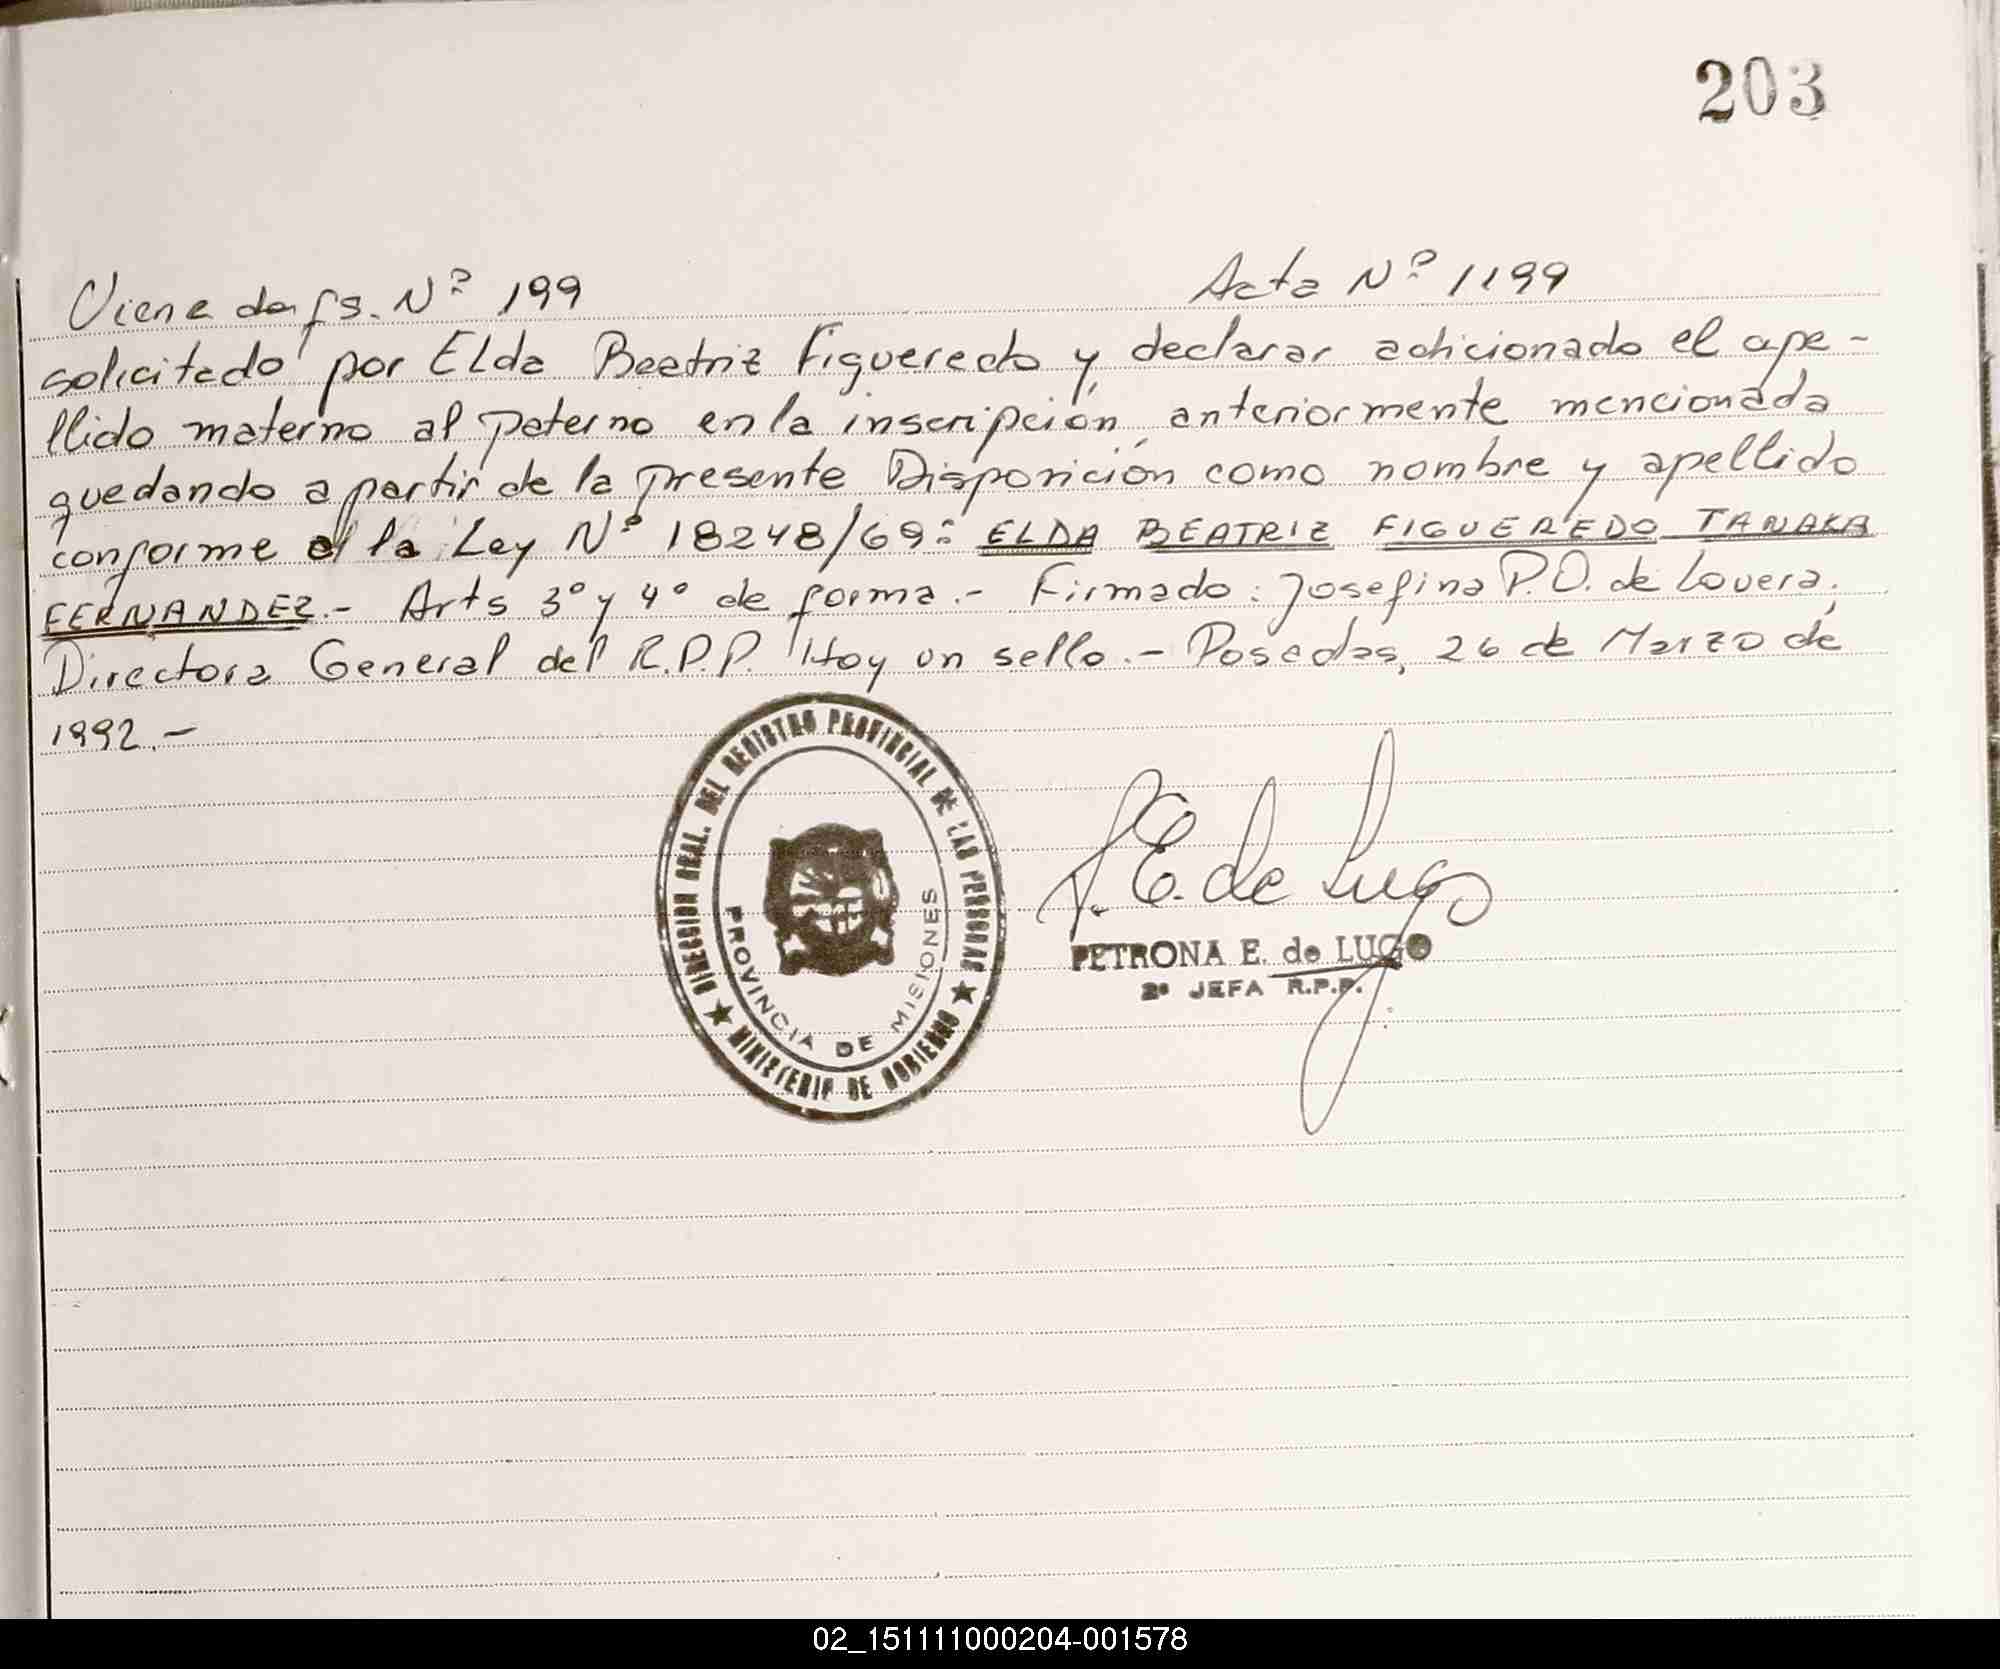 203
Viene de fs. Nº 199 Acta Nº 1199
solicitado por Elda Beatriz Figueredo y, declarar adicionado el ape-
llido materno al paterno en la inscripción, anteriormente mencionada
quedando a partir de la presente Disposición como nombre y apellido
conforme a la Ley Nº 18248/69: ELDA BEATRIZ FIGUEREDO TANAKA
FERNANDEZ.- Arts 3º y 4º de forma.- Firmado: Josefina P.O. de Lovera,
Directora General del R.P.P. Hoy un sello.- Posadas, 26 de Marzo de
1992.-
DIRECCION GRAL. DEL REGISTRO PROVINCIAL DE LAS PERSONAS
PROVINCIA DE MISIONES
MINISTERIO DE GOBIERNO
P. E. de Lugo
PETRONA E. de LUGO
2ª JEFA R.P.P.
02_151111000204-001578